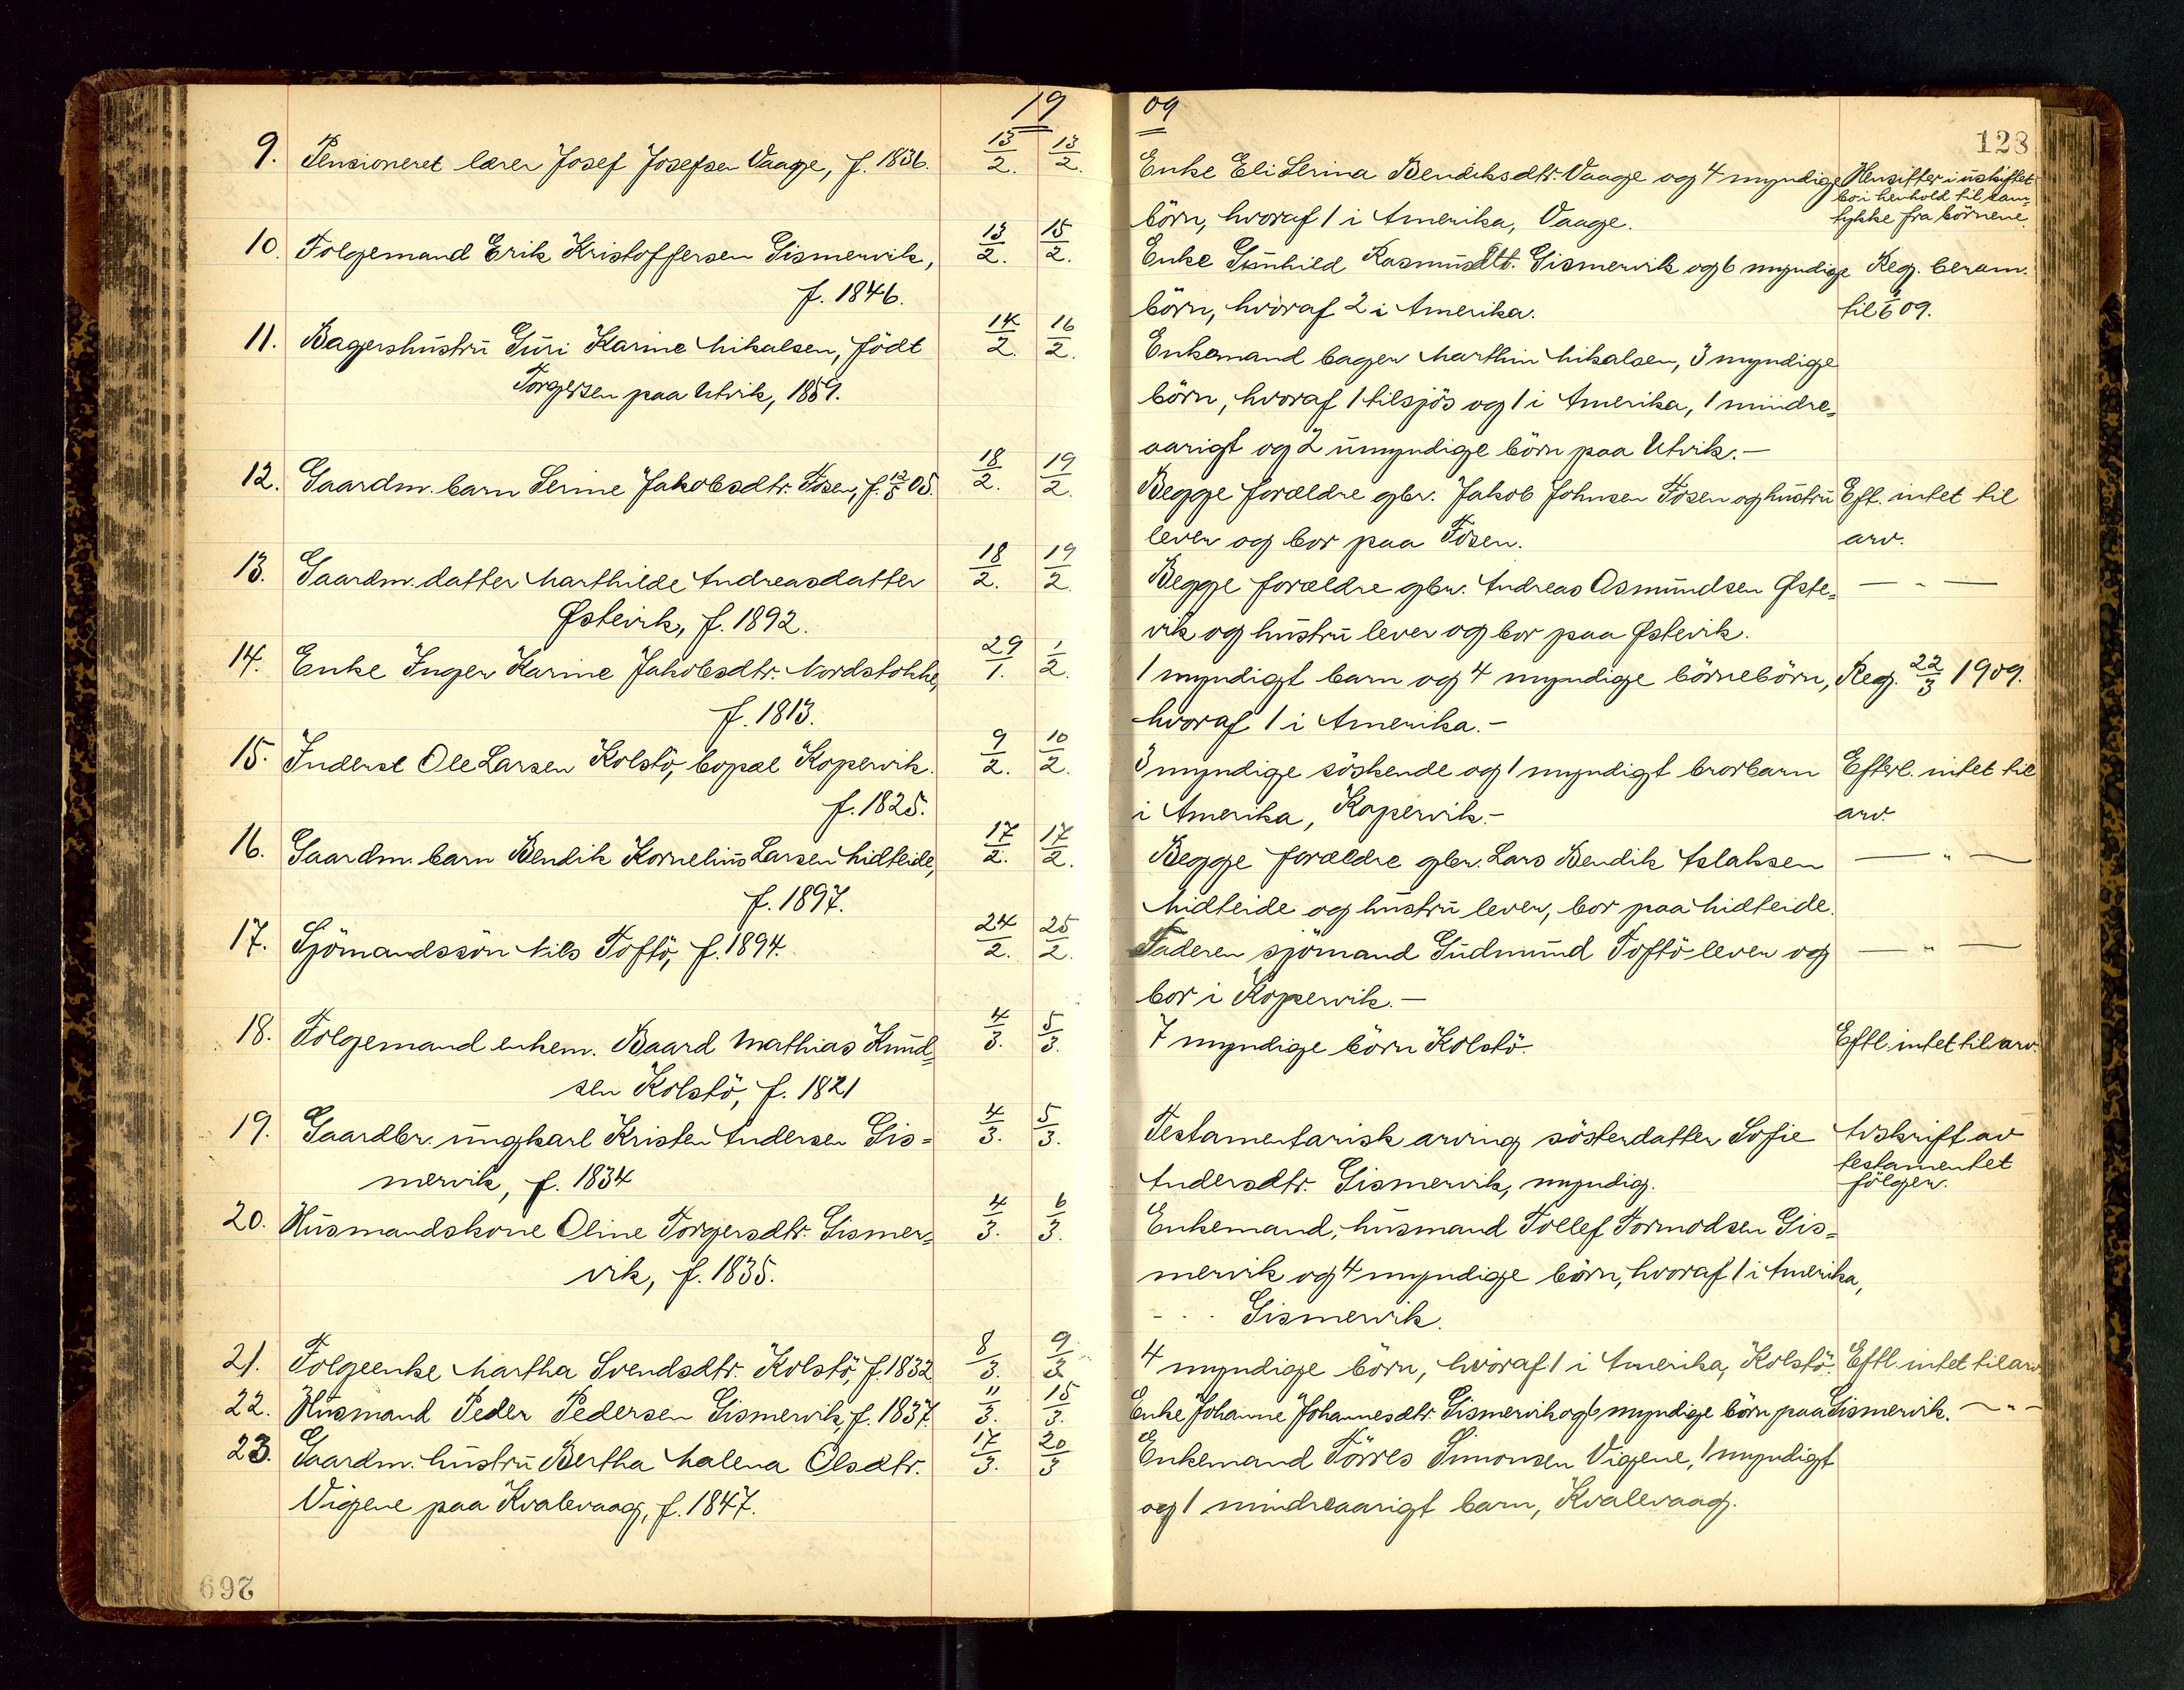 19 09
128
9. Pensioneret lærer Josef Josefsen Vaage, f. 1836. 13/2. 13/2. Enke Eli Serina Bendiksdtr. Vaage og 4 myndige Hensitter i uskiftet
bo i henhold til sam=
börn, hvoraf 1 i Amerika, Vaage. tykke fra börnene.
10. Folgemand Erik Kristoffersen Gismervik, 13/2. 15/2. Enke Gunhild Rasmusdtt. Gismervik og 6 myndige Reg. beram.
f. 1846. börn, hvoraf 2 i Amerika. til 09.
11. Bagershustru Guri Karine Mikalsen, födt 14/2. 16/2. Enkemand bager Marthin Mikalsen, 3 myndige
Torgersen paa Utvik, 1859. börn, hvoraf 1 tilsjös og 1 i Amerika, 1 mindre=
aarigt og 2 umyndige börn paa Utvik. —
12. Gaardm. barn Serine Jakobsdtr. Fosen, f. 05. 18/2. 19/2. Begge forældre gbr. Jakob Johnsen Fosen og hustru Eft. intet til
lever og bor paa Fosen. arv.
13. Gaardm. datter Marthilde Andreasdatter 18/2. 19/2. Begge forældre gbr. Andreas Osmundsen Øste= — " —
Østevik, f. 1892. vik og hustru lever og bor paa Østevik.
14. Enke Inger Karine Jakobsdtr. Nordstokke, 29/1. 1/2. 1 myndigt barn og 4 myndige börnebörn, Reg. 22/3 1909.
f. 1813. hvoraf 1 i Amerika. —
15. Inderst Ole Larsen Kolstö, bopæl Kopervik. 9/2. 10/2. 3 myndige söskende og 1 myndigt brorbarn Efterl. intet til
f. 1825. i Amerika, Kopervik. — arv.
16. Gaardm. barn Bendik Kornelius Larsen Midteide, 17/2. 17/2. Begge forældre gbr. Lars Bendik Aslaksen — " —
f. 1897. Midteide og hustru lever, bor paa Midteide.
17. Sjömandssön Nils Toftö, f. 1894. 24/2. 25/2. Faderen sjömand Gudmund Toftö lever og — " —
bor i Kopervik. —
18. Folgemand enkem. Baard Mathias Knud= 4/3. 5/3. 7 myndige börn Kolstö. Eftl. intet til arv.
sen Kolstö, f. 1821
19. Gaardbr. ungkarl Kristen Andersen Gis= 4/3. 5/3. Testamentarisk arving sösterdatter Sofie Avskrift av
testamentet
mervik, f. 1834 Andersdtr. Gismervik, myndig. fölger.
20. Husmandskone Oline Torgersdtr. Gismer= 4/3. 6/3. Enkemand, husmand Tollef Tormodsen Gis=
vik, f. 1835. mervik og 4 myndige börn, hvoraf 1 i Amerika,
Gismervik.
21. Folgeenke Martha Svendsdtr. Kolstö, f 1832 8/3. 9/3. 4 myndige börn, hvoraf 1 i Amerika, Kolstö. Eftl. intet til arv
22. Husmand Peder Pedersen Gismervik, f. 1837. 11/3. 15/3. Enke Johanne Johannesdtr. Gismervik og 6 myndige börn paa Gismervik. — " —
23. Gaardm. hustru Bertha Malena Olsdtr. 17/3. 20/3 Enkemand Törres Simonsen Vigene, 1 myndigt
Vigene paa Kvalevaag, f. 1847. og 1 mindreaarigt barn, Kvalevaag.
269